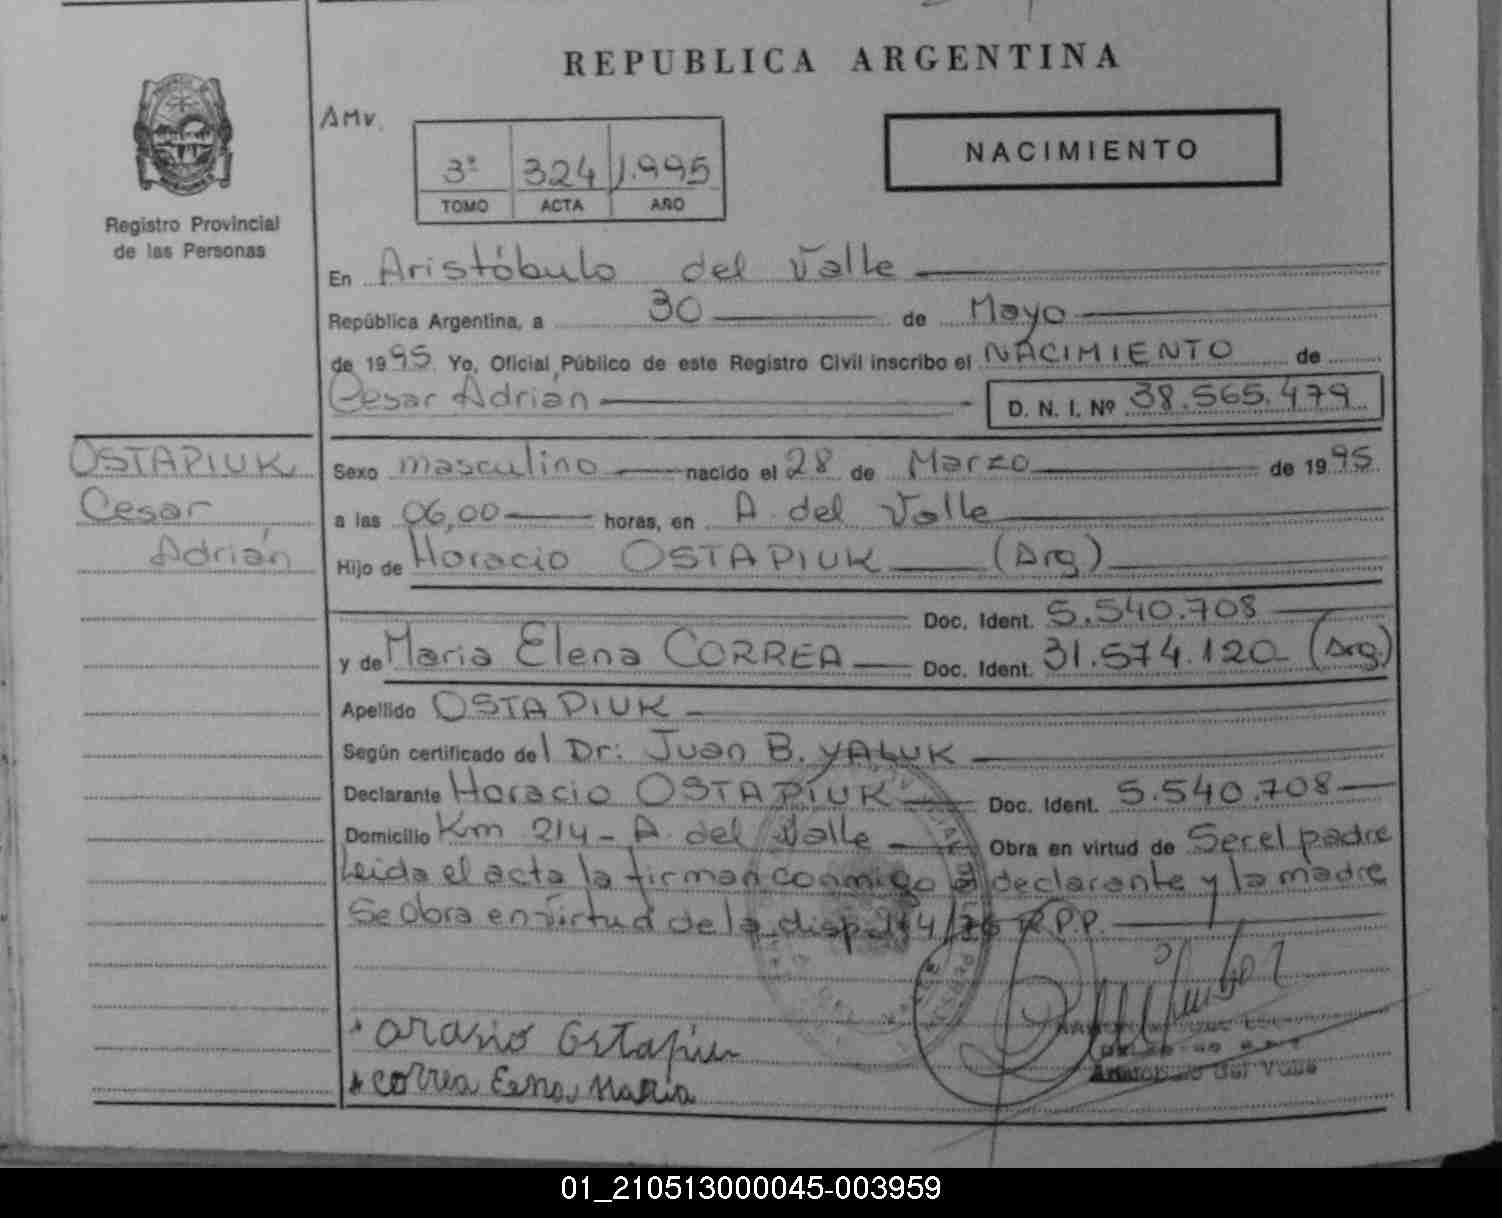 REPUBLICA ARGENTINA
AMV.
3º 324 1.995
TOMO ACTA AÑO
NACIMIENTO
Registro Provincial
de las Personas
En Aristóbulo del Valle
República Argentina, a 30 de Mayo
de 1995 Yo, Oficial Público de este Registro Civil inscribo el NACIMIENTO de
Cesar Adrian D. N. I. Nº 38.565.479
OSTAPIUK
Cesar
Adrián
Sexo masculino nacido el 28 de Marzo de 1995
a las 06,00 horas, en A. del Valle
Hijo de Horacio OSTAPIUK (Arg)
Doc. Ident. 5.540.708
y de Maria Elena CORREA Doc. Ident. 31.574.120 (Arg.)
Apellido OSTAPIUK
Según certificado del Dr: Juan B. YALUK
Declarante Horacio OSTAPIUK Doc. Ident. 5.540.708
Domicilio Km 214 - A. del Valle Obra en virtud de Ser el padre
Leida el acta la firman conmigo el declarante y la madre
Se obra en virtud de la disp. /76 R.P.P.
correa Maria
del Valle
01_210513000045-003959